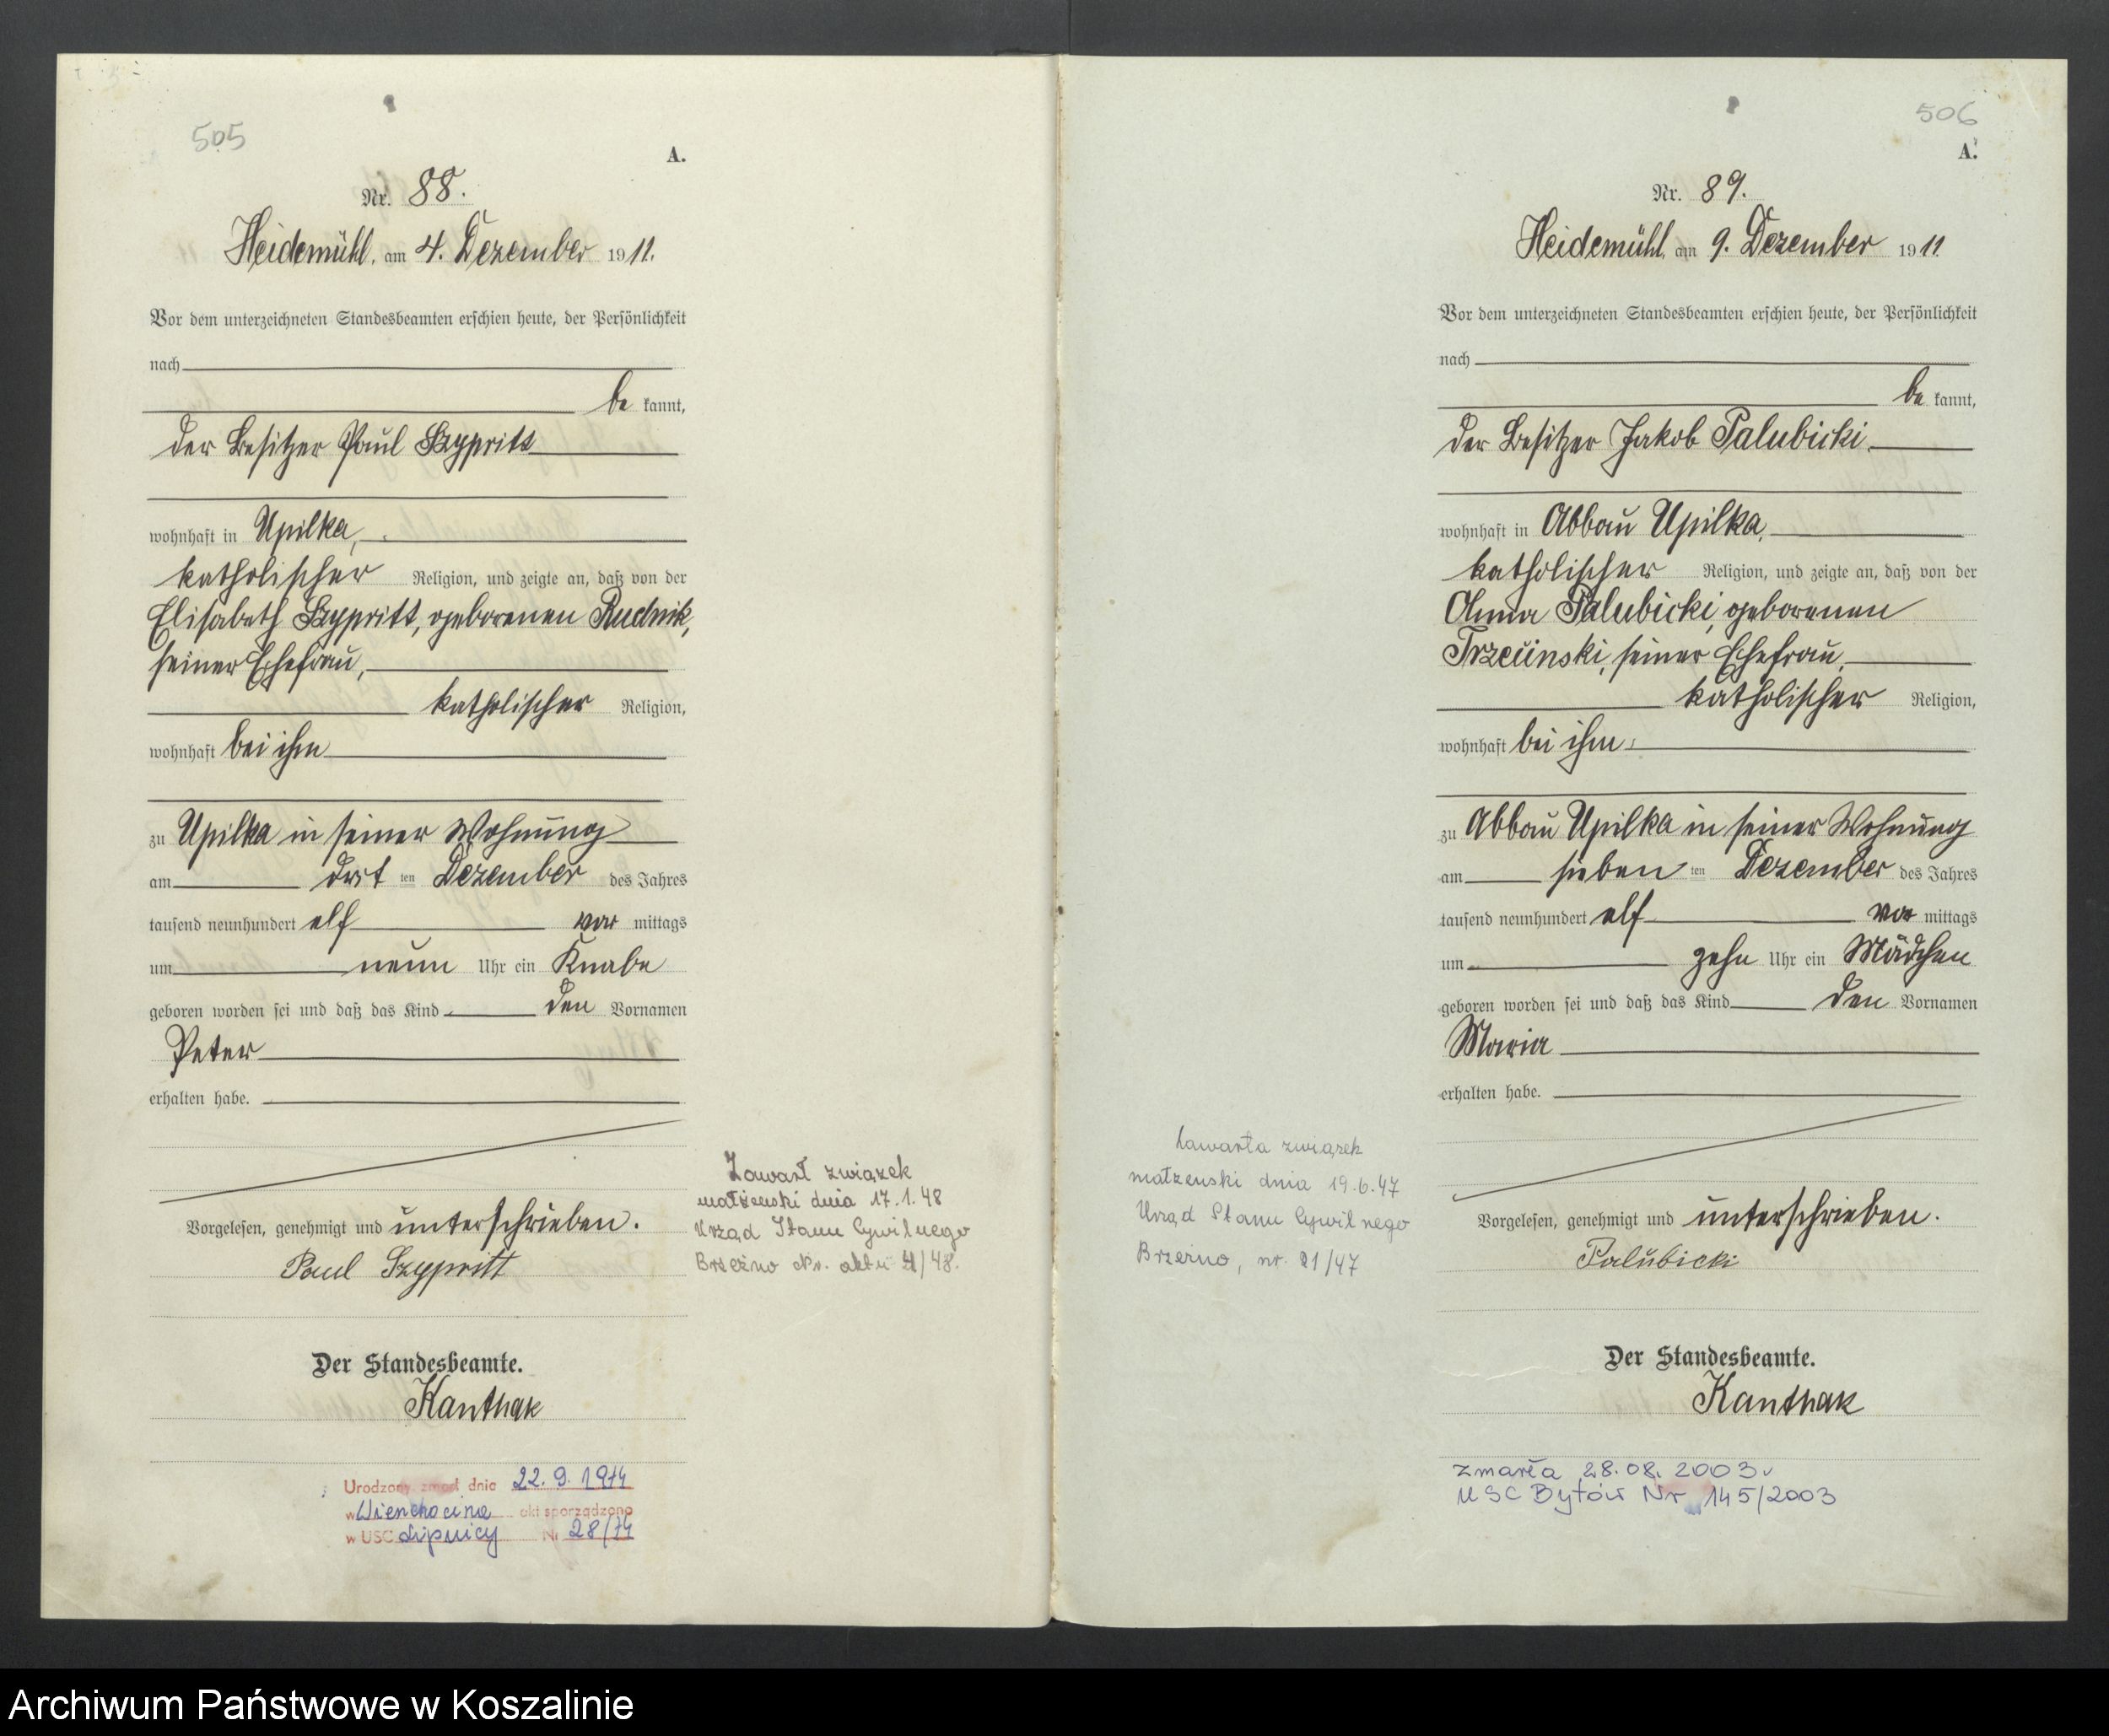 505
A.
Nr. 88.
Heidemühl, am 4. Dezember 1911.
Vor dem unterzeichneten Standesbeamten erschien heute, der Persönlichkeit
nach
be kannt,
der Besitzer Paul Szypritt
wohnhaft in Upilka,
katholischer Religion, und zeigte an, daß von der
Elisabeth Szypritt, geborenen Rudnik,
seiner Ehefrau,
katholischer Religion,
wohnhaft bei ihm
zu Upilka in seiner Wohnung
am drit ten Dezember des Jahres
tausend neunhundert elf vor mittags
um neun Uhr ein Knabe
geboren worden sei und daß das Kind den Vornamen
Peter
erhalten habe.
Vorgelesen, genehmigt und unterschrieben.
Paul Szypritt
Der Standesbeamte.
Kanthak
Zawarł związek
małżenski dnia 17.1.48
Urząd Stanu Cywilnego
Brzeźno Nr. aktu 4/48.
Urodzony zmarł dnia 22.9.1974
w akt sporządzono
w USC Lipnicy Nr 28/74
506
A.
Nr. 89.
Heidemühl, am 9. Dezember 1911
Vor dem unterzeichneten Standesbeamten erschien heute, der Persönlichkeit
nach
be kannt,
der Besitzer Jakob Palubicki,
wohnhaft in Abbau Upilka,
katholischer Religion, und zeigte an, daß von der
Anna Palubicki, geborenen
Trzcinski, seiner Ehefrau,
katholischer Religion,
wohnhaft bei ihm,
zu Abbau Upilka in seiner Wohnung
am sieben ten Dezember des Jahres
tausend neunhundert elf vor mittags
um zehn Uhr ein Mädchen
geboren worden sei und daß das Kind den Vornamen
Maria
erhalten habe.
Vorgelesen, genehmigt und unterschrieben.
Palubicki
Der Standesbeamte.
Kanthak
Zawarła związek
małzenski dnia 19.6.47
Urząd Stanu Cywilnego
Brzeźno, nr. 21/47
zmarła 28.08.2003r
USC Bytów Nr 145/2003
Archiwum Państwowe w Koszalinie